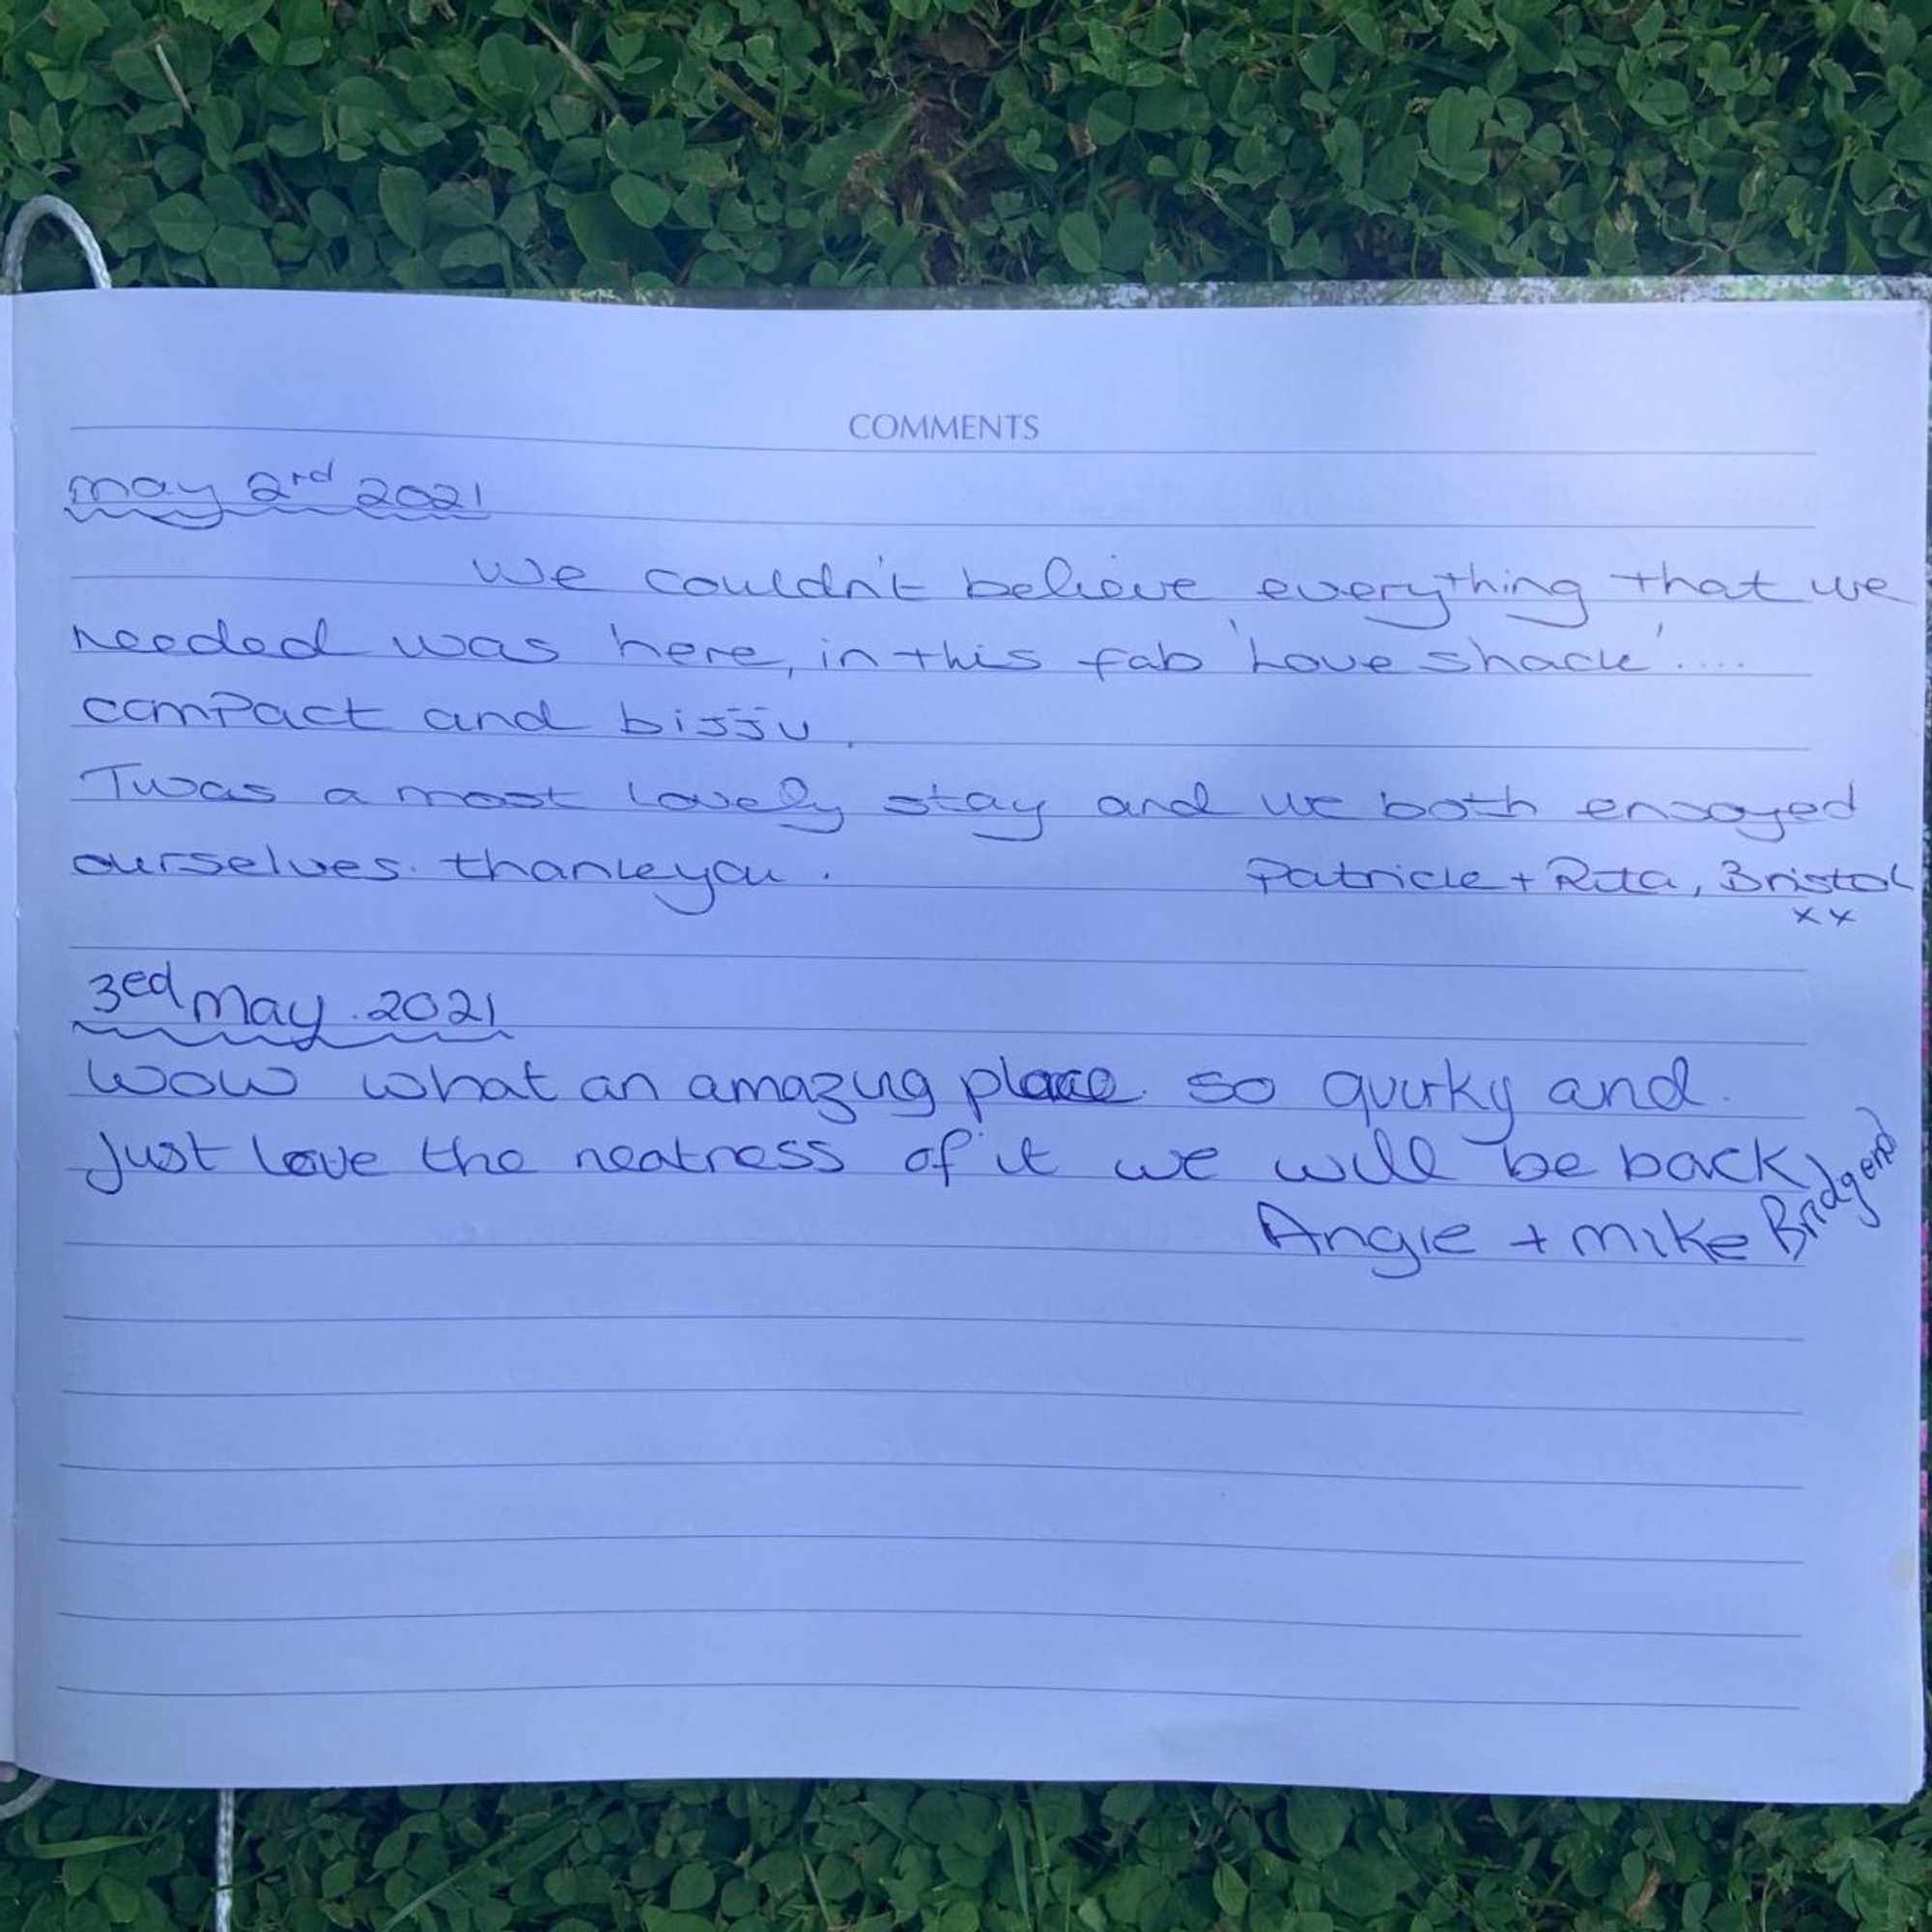 COMMENTS
may 2nd 2021
We couldn't believe everything that we
needed was here, in this fab 'Love shack'....
comPact and bijju.
Twas a most lovely stay and we both enjoyed
ourselves. thankyou.
Patrick + Rita, Bristol
xx
3ed May. 2021
Wow what an amazing place. so quirky and.
Just love the neatness of it we will be back
Angie + Mike Bridgend